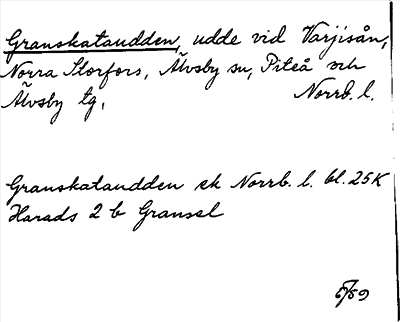 Granskataudden, udde vid Varjisån,
Norra Storfors, Älvsby sn, Piteå och
Älvsby tg, Norrb. l.
Granskataudden ek Norrb. l. bl. 25K
Harads 2 b Gransel